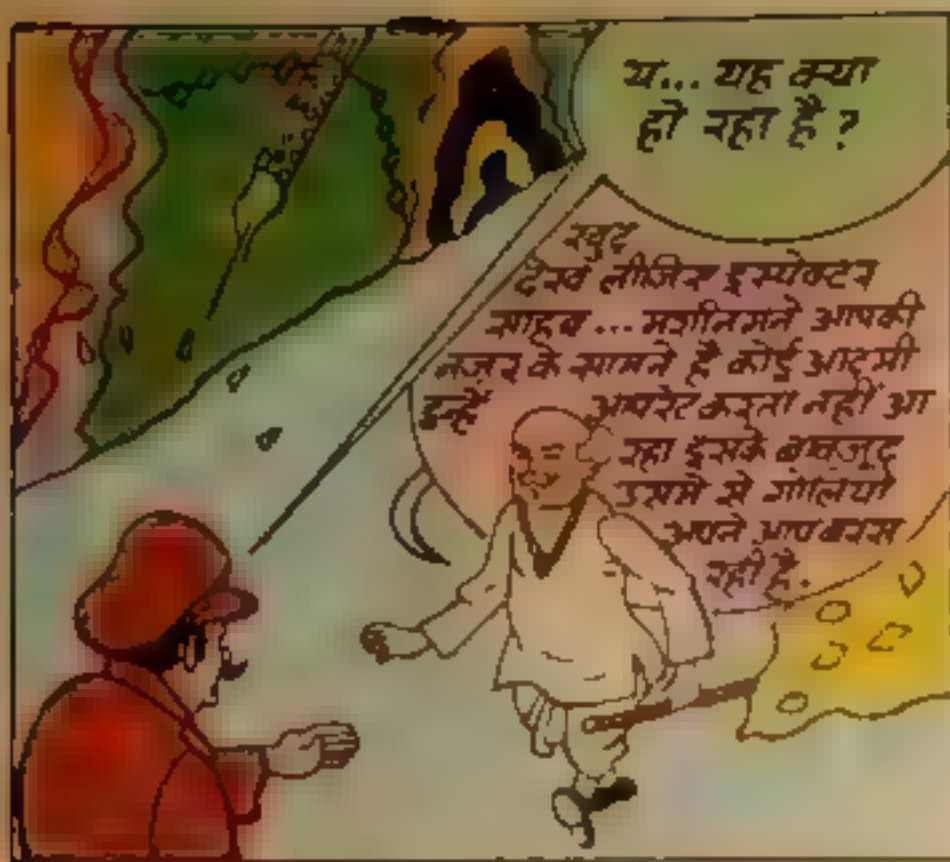 य... यह क्या
हो रहा है ?
खुद
देख लीजिए इन्स्पेक्टर
साहब ... मशीनगनें आपकी
नज़र के सामने है कोई आदमी
इन्हें आपरेट करता नहीं आ
रहा इसके बावजूद
उसमें से गोलियां
अपने आप बरस
रही है.